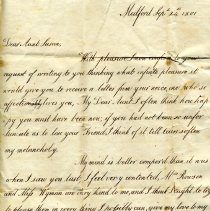 Medford Sept 14th 1801
Dear Aunt Susan,
With pleasure I now comply to your
request of writing to you thinking what infinite pleasure it
would give you to receive a letter from your niece, one who so
affectionately loves you, My Dear Aunt, I often think how hap
py you must have been now, if you had not been so unfor
tunate as to lose your Friend, I think of it till tears soften
my melancholy.
My mind is better composed than it was
when I saw you last, I feel very contented, Mrs Rowson
and Miss Wyman are very kind to me, and I think I ought to try
to please them in every thing I possibly can, give my love to my